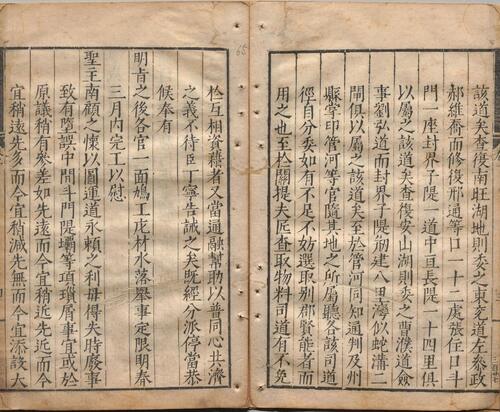 該道矣查復南旺湖地則委之東兗道左參政
郝維喬而修復邢通等口一十二處張住口斗
門一座封界子隄一道中亘長隄一十四里俱
以屬之該道矣查復安山湖則委之曹濮道僉
事劉弘道而封界子隄剏建八里灣似蛇溝二
閘俱以屬之該道矣至於管河同知通判及州
縣掌印管河等官隨其地之所屬聽各該司道
徑自分委如有不妨選取別郡賢能者而
用之也至於關提夫匠查取物料司道有不免
於互相資藉者又當通融幫助以普同心共濟
之義不待臣丁寧告誡之矣既經分派停當恭
候奉有
明旨之後各官一面鳩工庀材水落舉事定限明春
三月內完工以慰
聖主南顧之懷以圖運道永賴之利毋得失時廢事
致有墮誤中間斗門隄壩等項瑣屑事宜或於
原議稍有參差如先遠而今宜稍近先近而今
宜稍遠先多而今宜稍減先無而今宜添設大